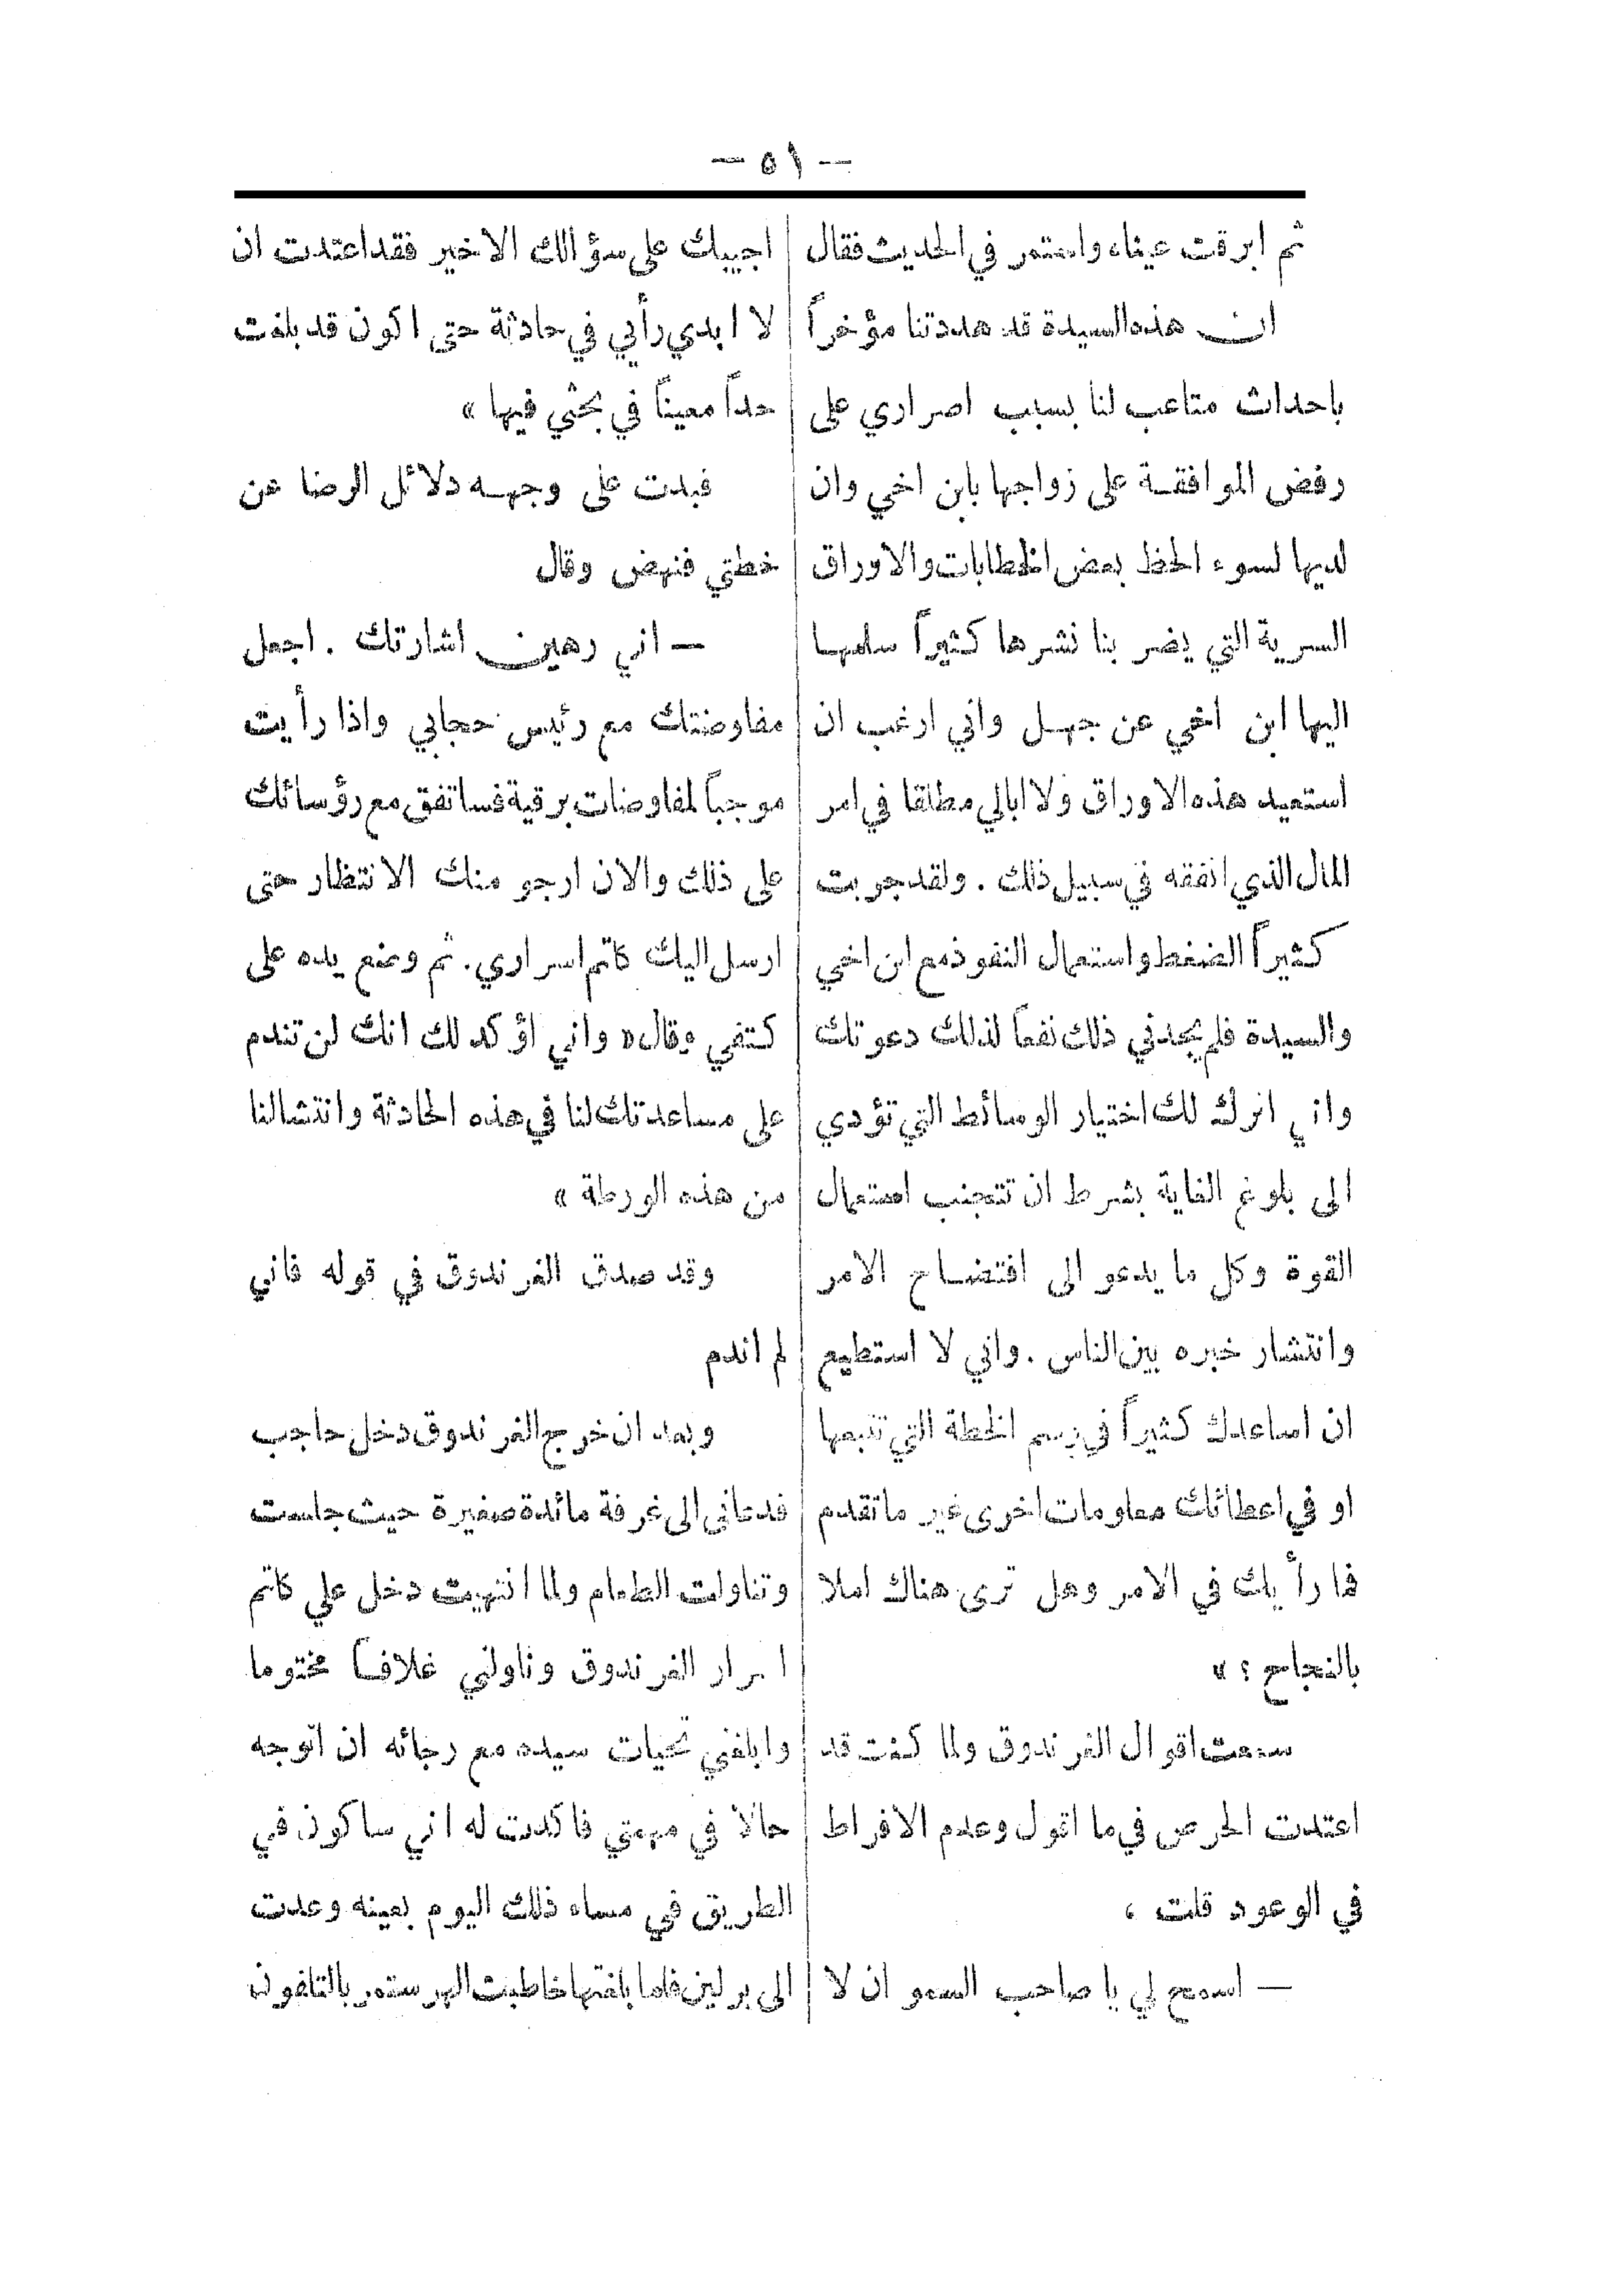 — ٥١ —
ثم ابرقت عيناه واستمر في الحديث فقال
ان هذه السيدة قد هددتنا مؤخراً
باحداث متاعب لنا بسبب اصراري على
رفض الموافقة على زواجها بابن اخي وان
لديها لسوء الحظ بعض الخطابات والاوراق
السرية التي يضر بنا نشرها كثيراً سلمها
اليها ابن اخي عن جهل واني ارغب ان
استعيد هذه الاوراق ولا ابالي مطلقا في امر
المال الذي انفقه في سبيل ذلك . ولقد جربت
كثيراً الضغط واستعمال النفوذ مع ابن اخي
والسيدة فلم يجدني ذلك نفعاً لذلك دعوتك
واني اترك لك اختيار الوسائط التي تؤدي
الى بلوغ الغاية بشرط ان تتجنب استعمال
القوة وكل ما يدعو الى افتضاح الامر
وانتشار خبره بين الناس . واني لا استطيع
ان اساعدك كثيراً في رسم الخطة التي تتبعها
او في اعطائك معلومات اخرى غير ما تقدم
فما رأيك في الامر وهل ترى هناك املا
بالنجاح ؟ »
سمعت اقوال الغرندوق ولما كنت قد
اعتدت الحرص في ما اقول وعدم الافراط
في الوعود قلت ،
— اسمح لي يا صاحب السمو ان لا
اجيبك على سؤالك الاخير فقد اعتدت ان
لا ابدي رأيي في حادثة حتى اكون قد بلغت
حداً معيناً في بحثي فيها »
فبدت على وجهه دلائل الرضا عن
خطتي فنهض وقال
— اني رهين اشارتك . اجعل
مفاوضتك مع رئيس حجابي واذا رأيت
موجباً لمفاوضات برقية فساتفق مع رؤسائك
على ذلك والان ارجو منك الانتظار حتى
ارسل اليك كاتم اسراري . ثم وضع يده على
كتفي وقال « واني اؤكد لك انك لن تندم
على مساعدتك لنا في هذه الحادثة وانتشالنا
من هذه الورطة »
وقد صدق الغرندوق في قوله فاني
لم اندم
وبعد ان خرج الغرندوق دخل حاجب
فدعاني الى غرفة مائدة صغيرة حيث جلست
وتناولت الطعام ولما انتهيت دخل علي كاتم
اسرار الغرندوق وناولني غلافاً مختوما
وابلغني تحيات سيده مع رجائه ان اتوجه
حالاً في مهمتي فاكدت له اني ساكون في
الطريق في مساء ذلك اليوم بعينه وعدت
الى برلين فلما بلغتها خاطبت الهر ستمر بالتلفون